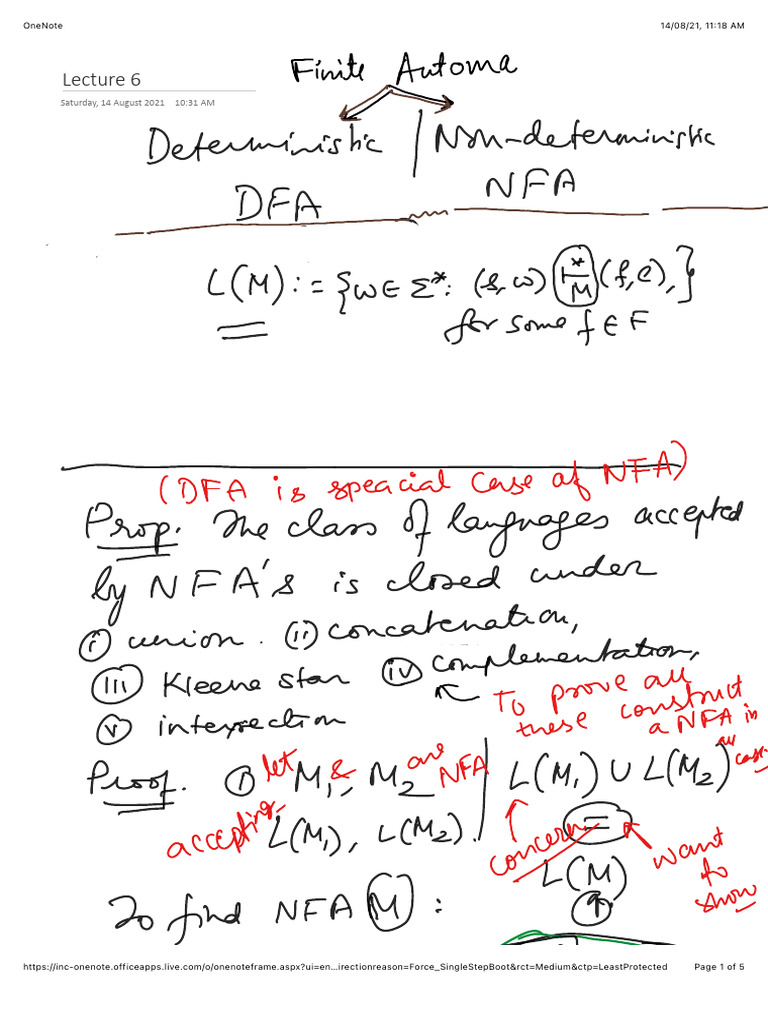 OneNote
14/08/21, 11:18 AM
Lecture 6
Saturday, 14 August 2021 10:31 AM
Finite Automa
Deterministic | Non-deterministic
DFA NFA
L(M) := {w ∈ Σ*: (s, w) ⊢*M (f, e),}
for some f ∈ F
(DFA is speacial case of NFA)
Prop. The class of languages accepted
by NFA's is closed under
(i) union. (ii) concatenation,
(iii) Kleene star (iv) complementation,
(v) intersection
To prove all
these construct
a NFA in
all case
Proof. (1) let M1, & M2 are NFA
accepting L(M1), L(M2).
L(M1) ∪ L(M2)
=
L(M)
concern
want
to
show
To find NFA M :
https://inc-onenote.officeapps.live.com/o/onenoteframe.aspx?ui=en...irectionreason=Force_SingleStepBoot&rct=Medium&ctp=LeastProtected
Page 1 of 5